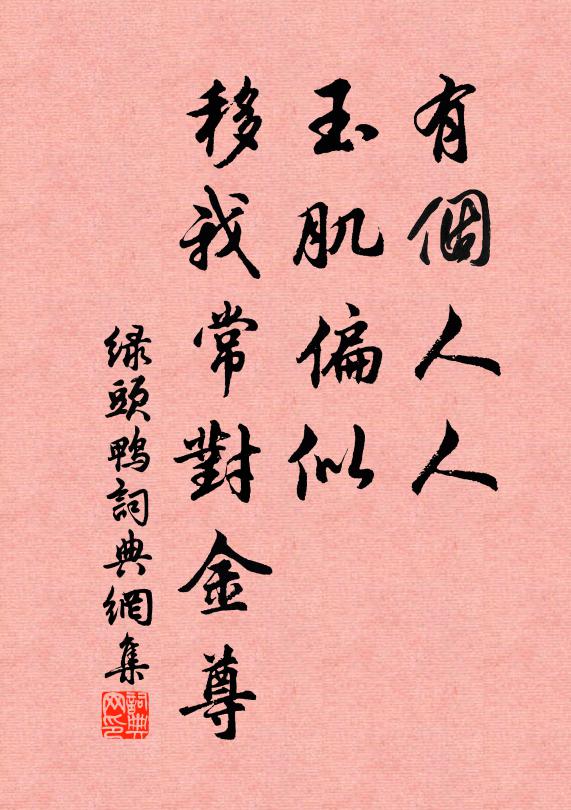 有個人人
玉肌偏似
移我常對金尊
绿頭鴨詞典網集
詞典网印